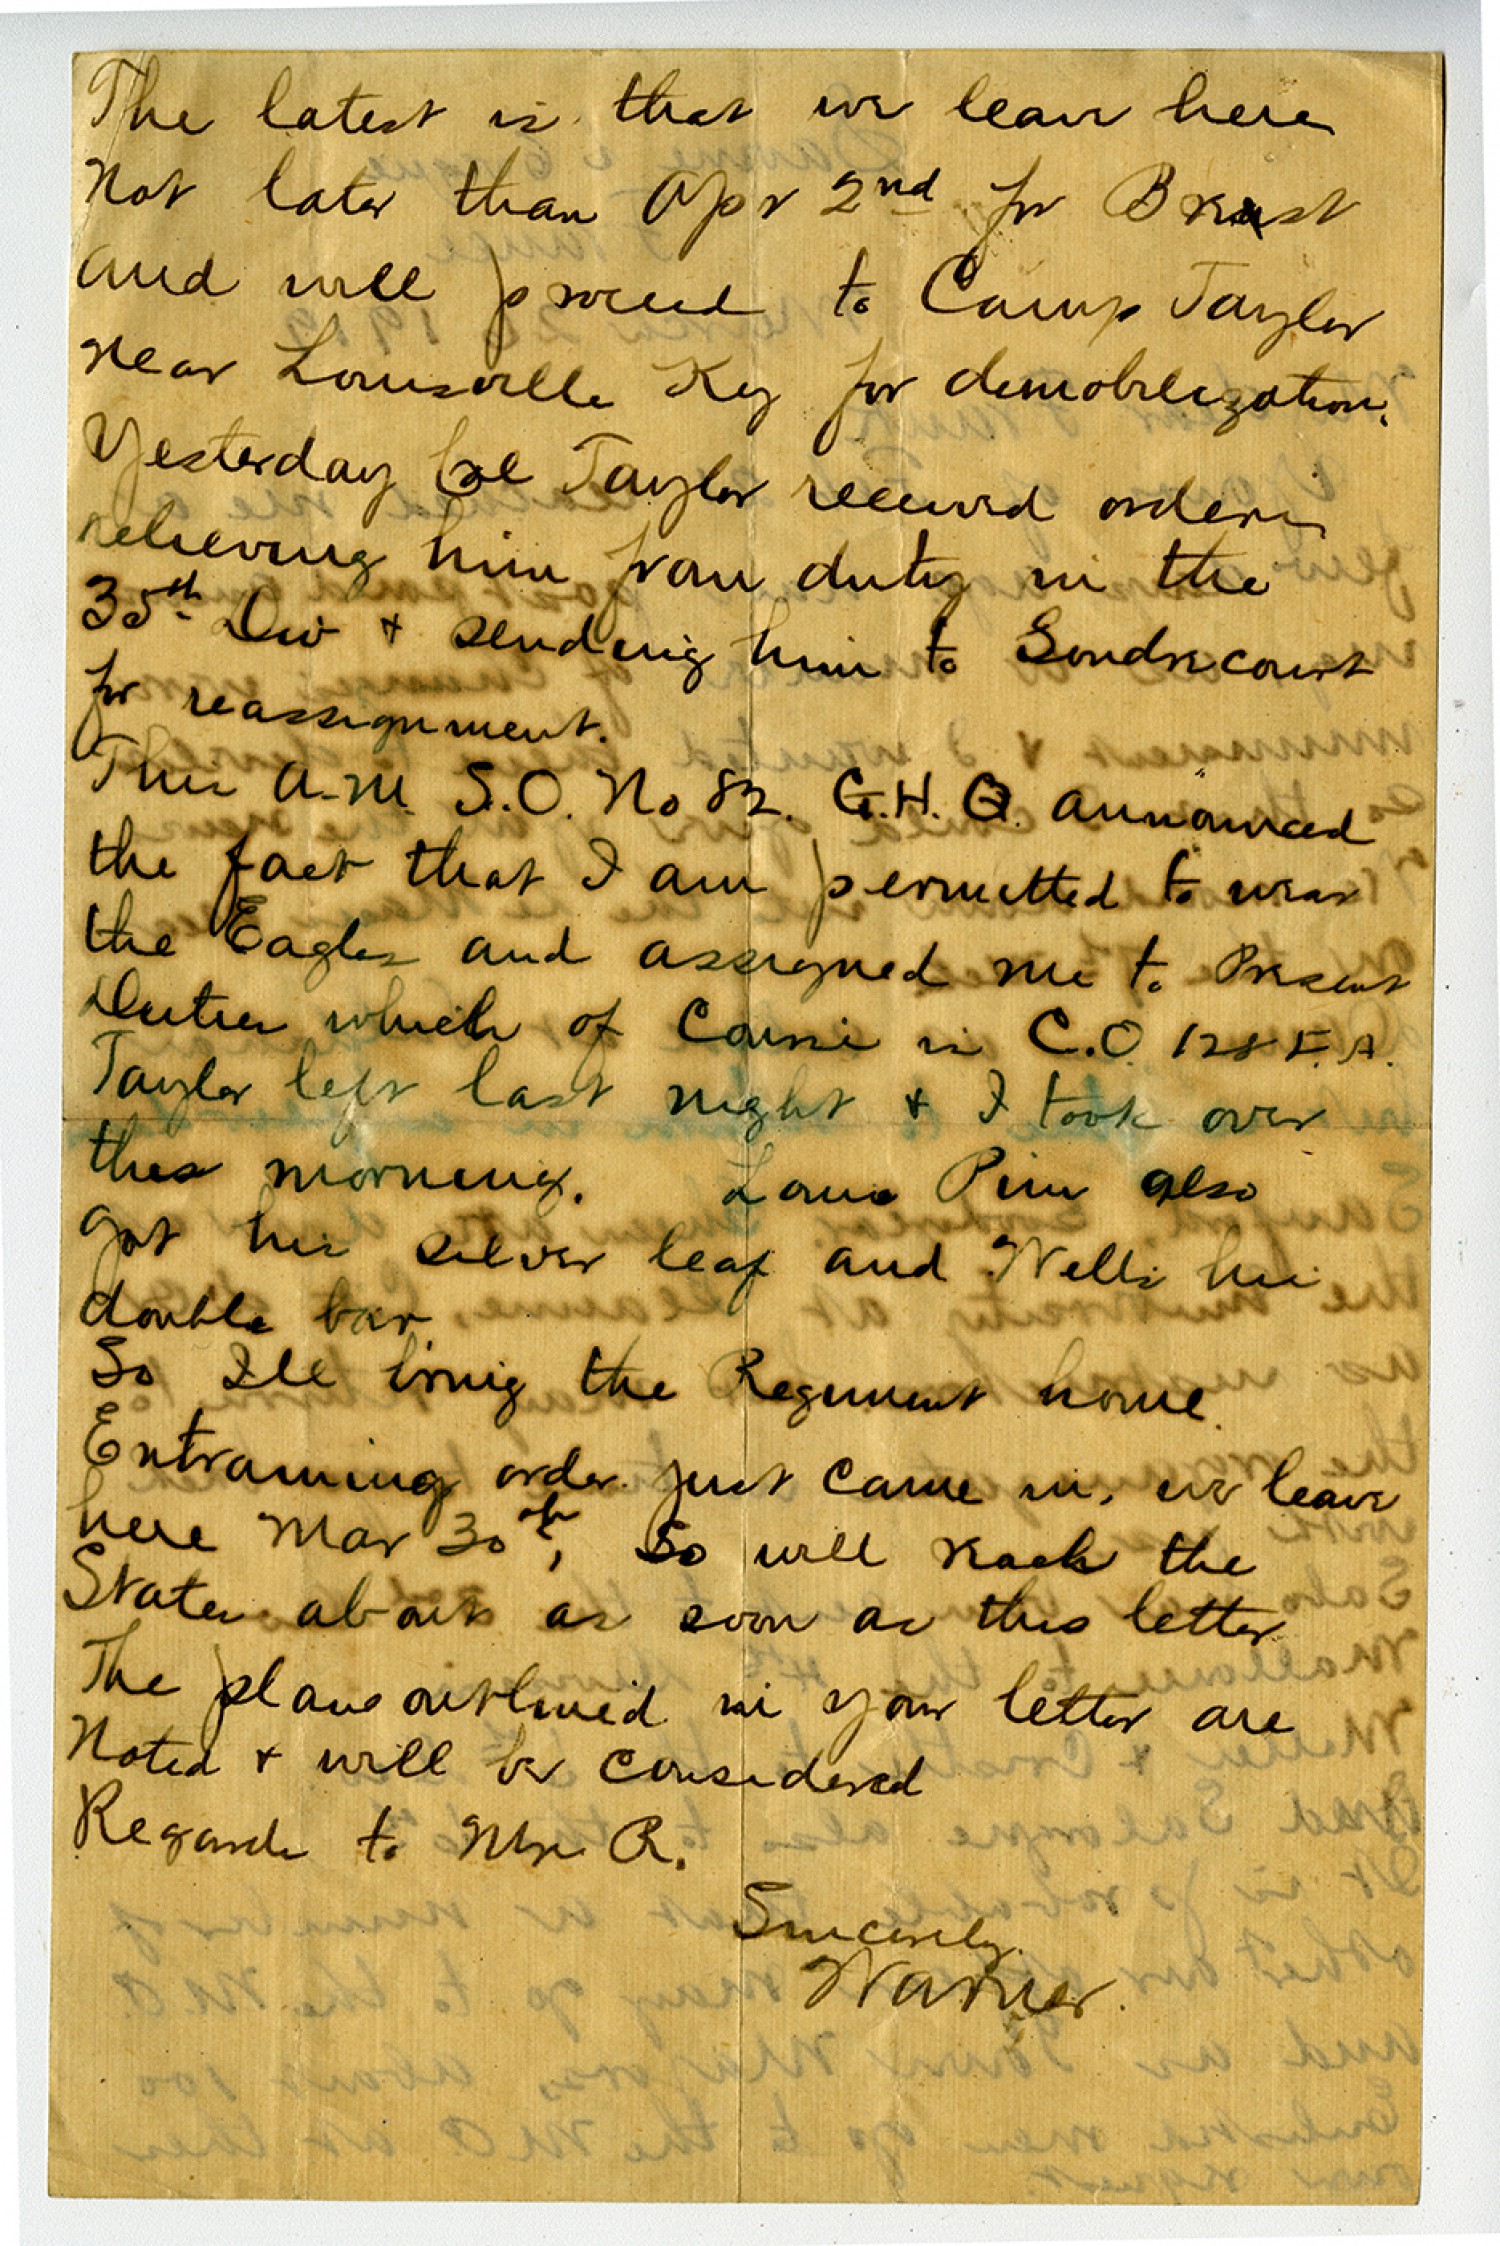 The latest is that we leave here
Not later than Apr 2nd for Brest
and will proceed to Camp Taylor
near Louisville Ky for demobilization.
Yesterday Col Taylor received orders
relieving him from duty in the
35th Div + sending him to Gondrecourt
for reassignment.
This A.M. S.O. No 82. G.H.Q. announced
the fact that I am permitted to wear
the Eagles and assigned me to Present
Duties which of course is C.O. 128 F.A.
Taylor left last night + I took over
this morning. Lane Pim also
got his silver leaf and Wells his
double bar.
So Ill bring the Regiment home.
Entraining order just came in, we leave
here Mar 30th, So will reach the
States about as soon as this letter
The plans outlined in your letter are
Noted + will be considered
Regards to Mrs R.
Sincerely
Warner.